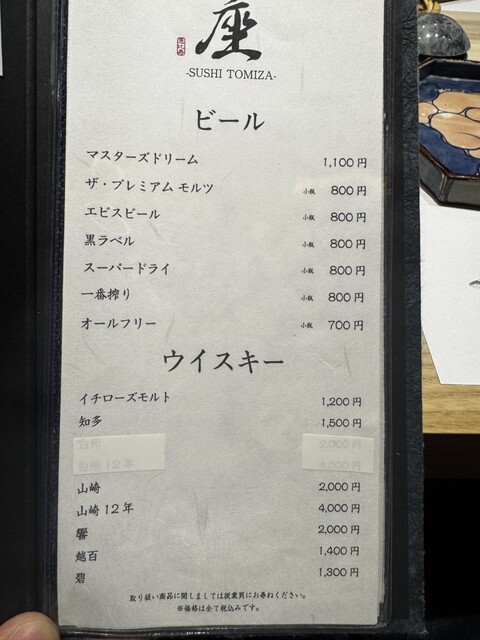 座
-SUSHI TOMIZA-
ビール
マスターズドリーム 1,100円
ザ・プレミアム モルツ 小瓶 800円
エビスビール 小瓶 800円
黒ラベル 小瓶 800円
スーパードライ 小瓶 800円
一番搾り 小瓶 800円
オールフリー 小瓶 700円
ウイスキー
イチローズモルト 1,200円
知多 1,500円
白州 2,000円
白州 12年 4,000円
山崎 2,000円
山崎 12年 4,000円
響 2,000円
越百 1,400円
碧 1,300円
取り扱い商品に関しましては従業員にお尋ねください。
※価格は全て税込みです。